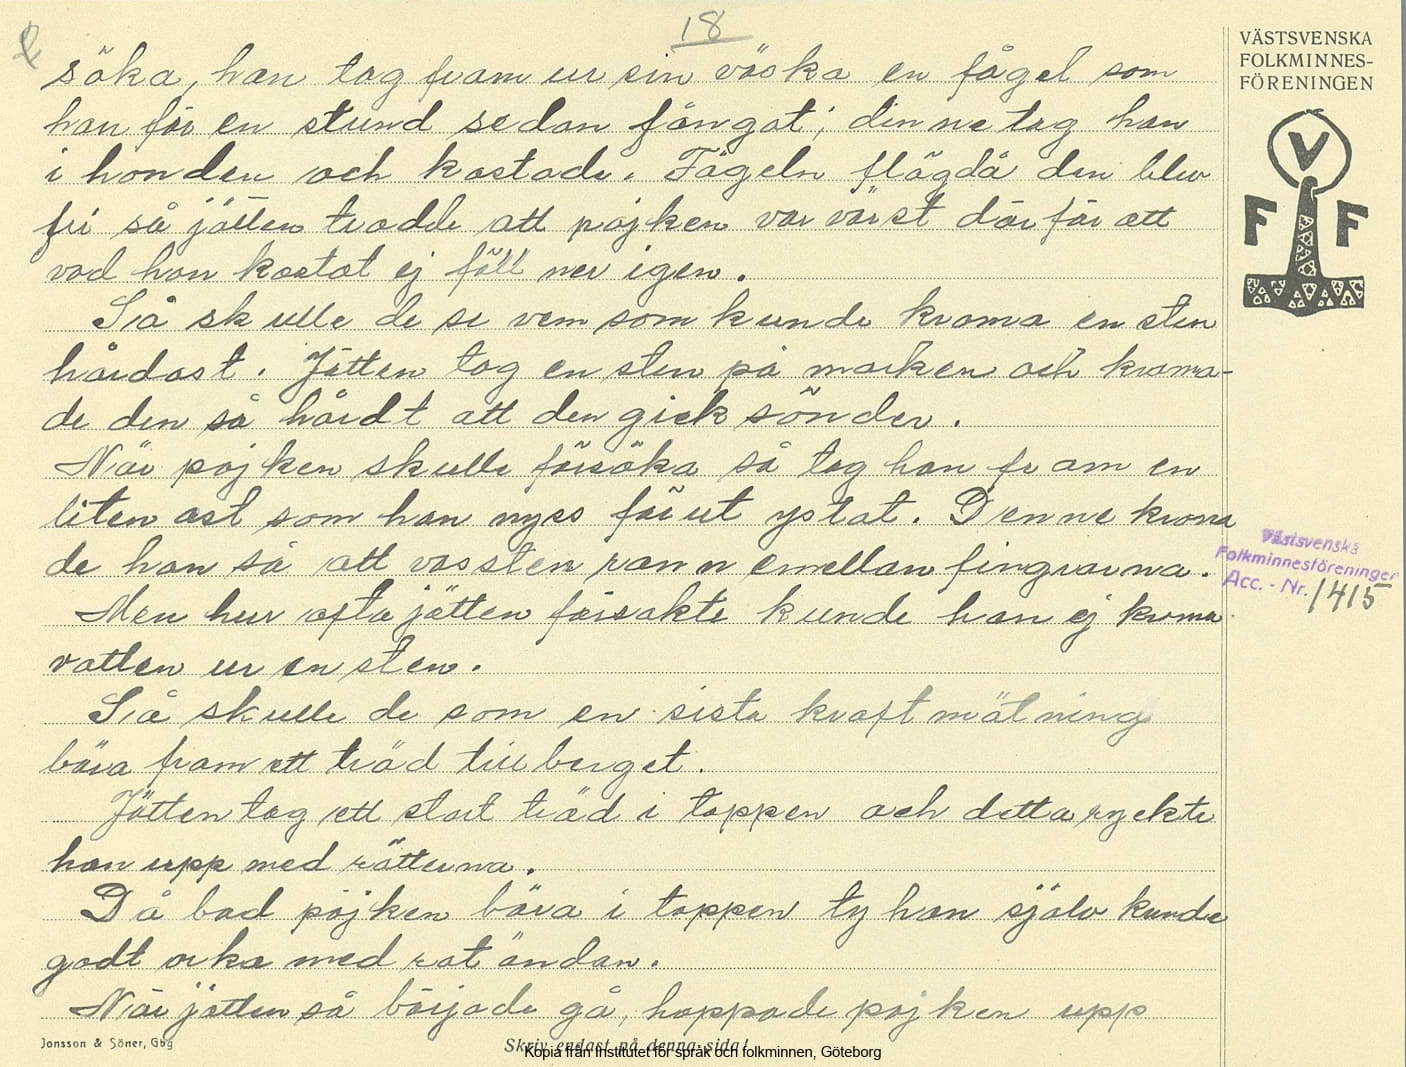 18
söka, han tog fram ur sin väska en fågel som
han för en stund sedan fångat; dinne tog han
i handen och kastade. Fågeln flögdå den blev
fri så jätten trodde att pojken var värst därför att
vad han kastat ej föll ner igen.
Så skulle de se vem som kunde krama en sten
hårdast. Jätten tog en sten på marken och krama-
de den så hårdt att den gick sönder.
När pojken skulle försöka så tog han fram en
liten ost som han nyss förut ystat. Denne krama
de han så att vassten rann emellan fingrarna.
Men hur ofta jätten försökte kunde han ej krama
vatten ur en sten.
Så skulle de som en sista kraftmätning
bära fram ett träd till berget.
Jätten tog ett stort träd i toppen och detta ryckte
han upp med rötterna.
Då bad pojken bära i toppen ty han själv kunde
godt orka med rotändan.
När jätten så började gå, hoppade pojken upp
VÄSTSVENSKA
FOLKMINNES-
FÖRENINGEN
V
F F
Västsvenska
Folkminnesföreningen
Acc. - Nr. 1415
Jonsson & Söner, Gbg
Skriv endast på denna sida!
Kopia från Institutet för språk och folkminnen, Göteborg